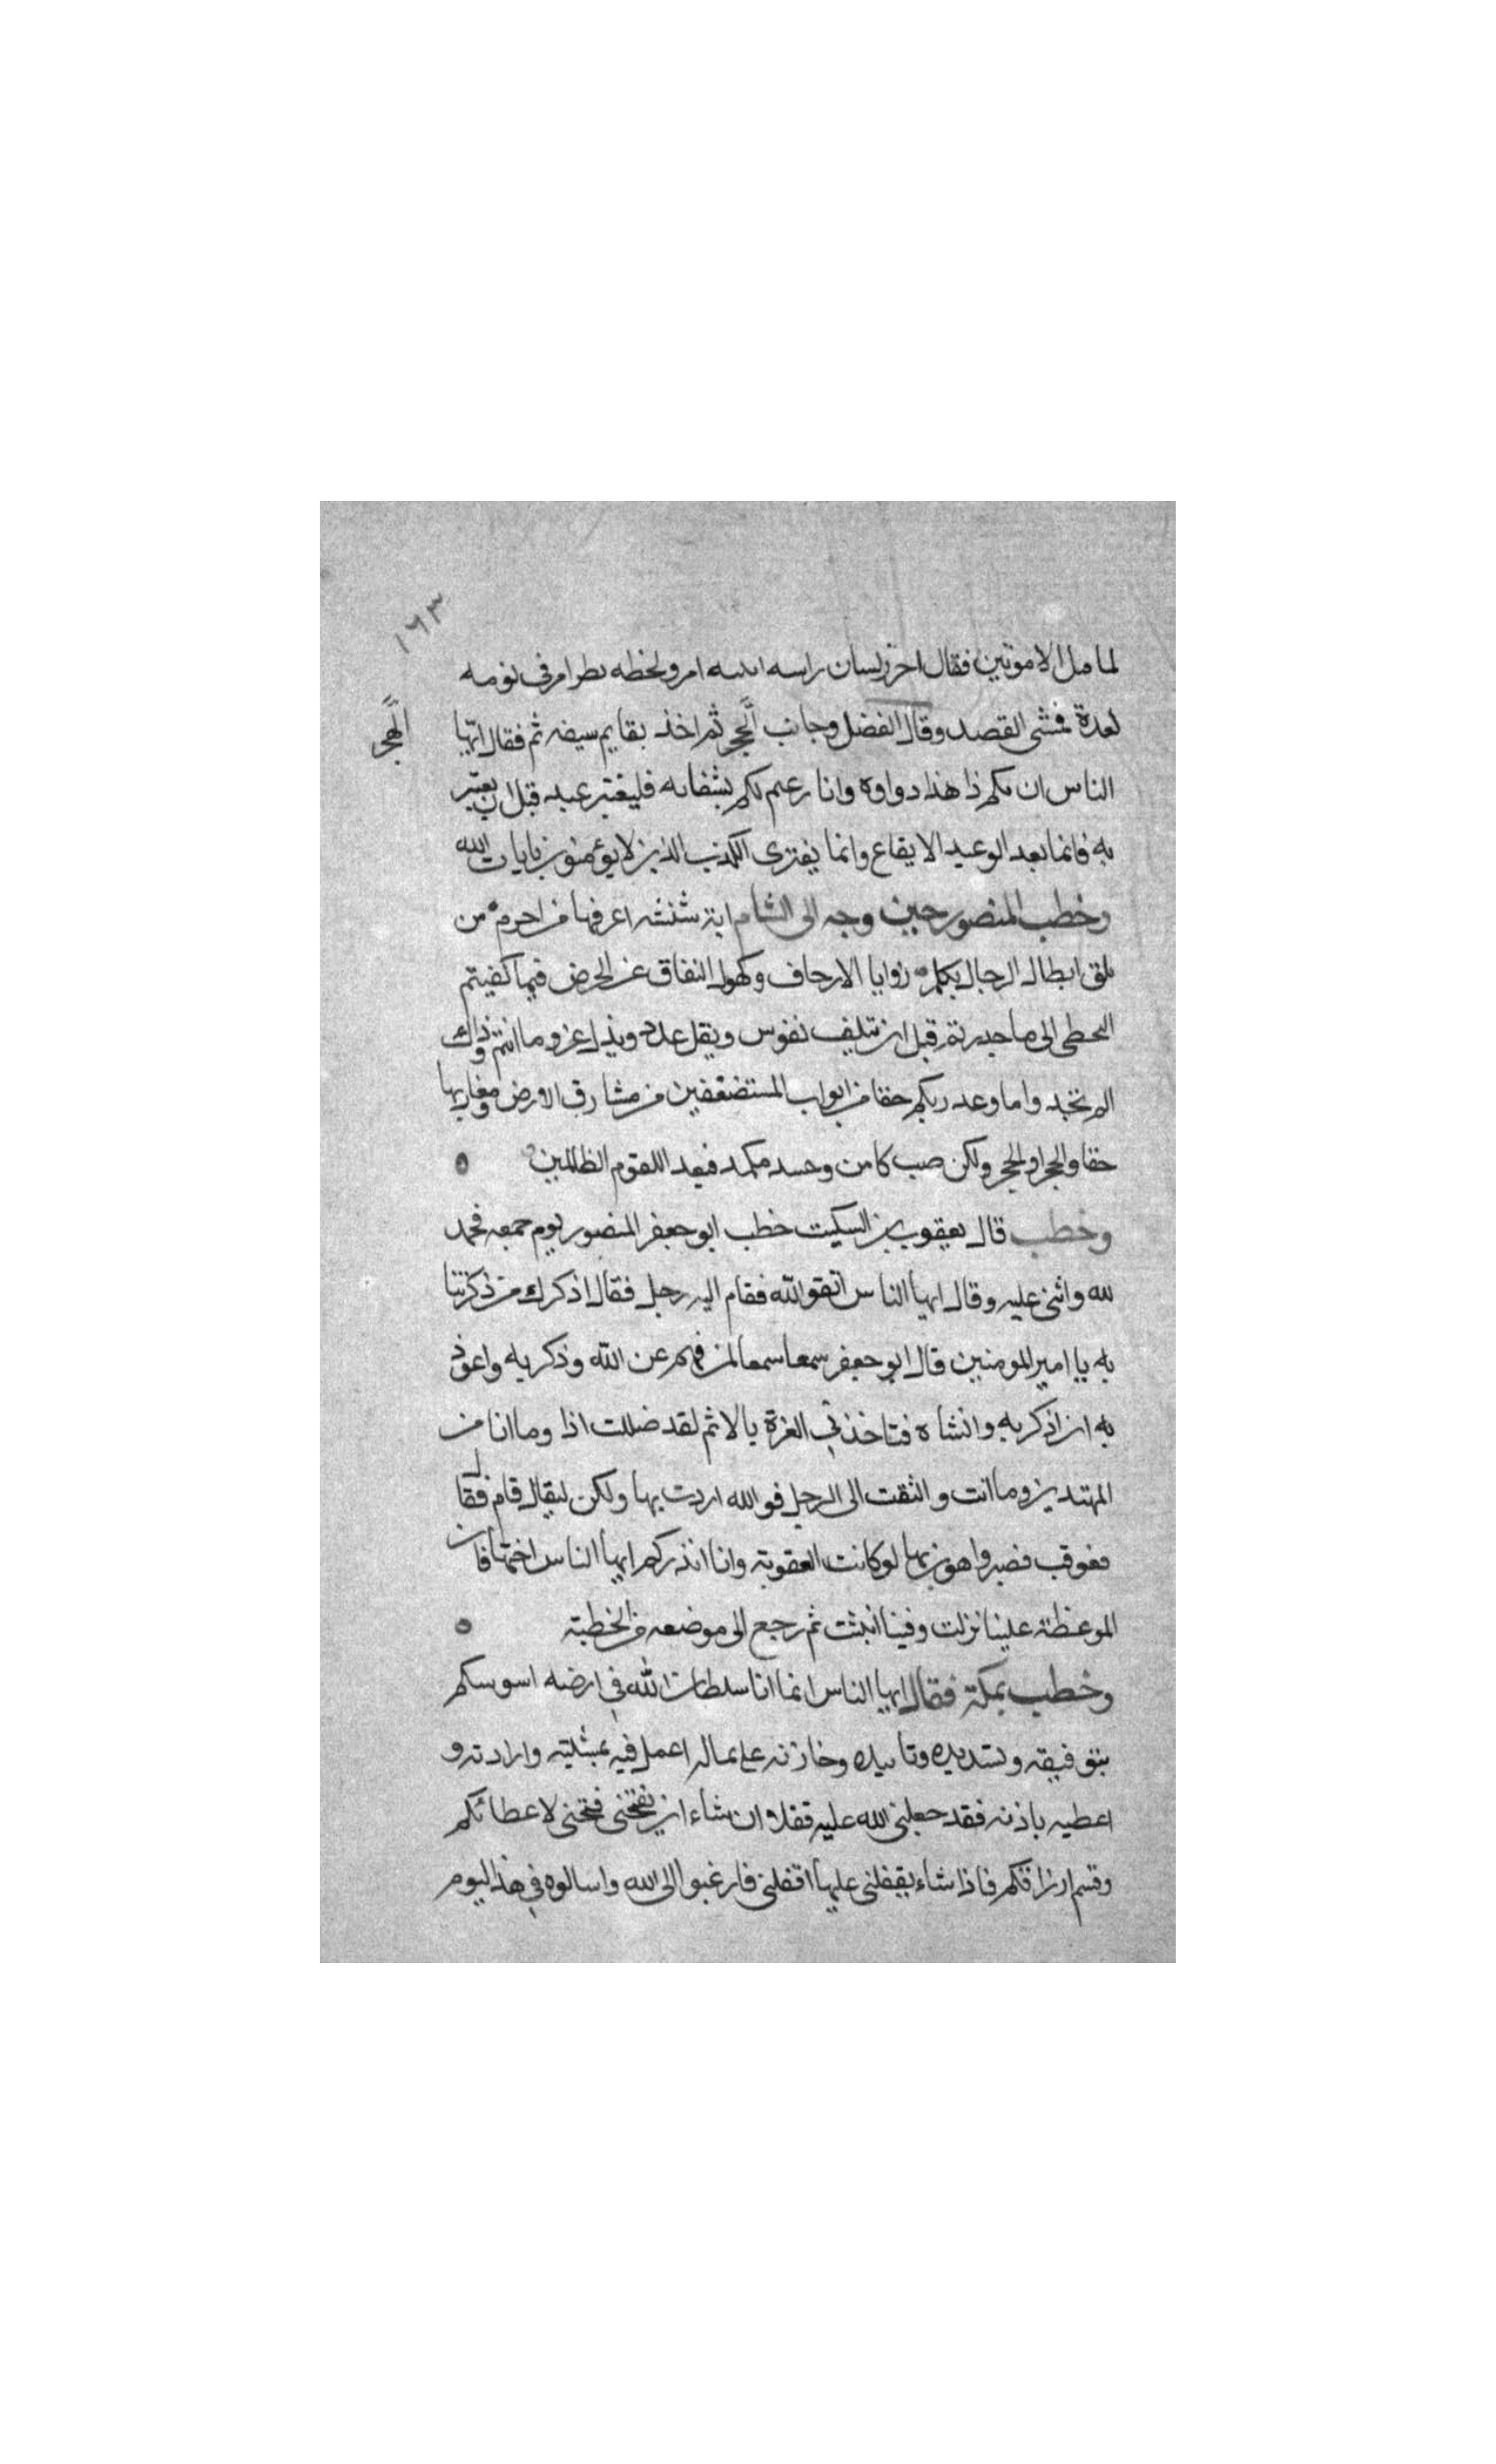 ١٦٣
لما مل الامويين فقال احرز لسان راسه امرو لحظه نظر امر في يومه
لعدة فمشى القصد وقال الفضل وجانب الهجر ثم اخذ بقايم سيفه ثم فقال ايها
الهجر
الناس ان بكم ذا هذا دواوه وانا زعيم لكم بشفائه فليعتبر عبد قبل ان يعتبر
به فانما بعد الوعيد الايقاع وانما يفترى الكذب الذين لا يؤمنون بايات الله
وخطب المنصور حين وجه الى الشام ابة شنشنه اعرفها من احرم من
يلق ابطال الرجال يكلم زوايا الارجاف وكهول النفاق عن الخرض فيما كفيتم
التخطى الى ما حدرتم قبل ان تتلف نفوس ويقل عدد ويذل عز وما انتم وذاك
الم نجد واما وعد ربكم حقا من ابواب المستضعفين من مشارق الارض ومغاربها
حقا والحجر والحجر ولكن صب كامن وحسد مكمد فبعد اللقوم الظالمين ٥
وخطب قال يعقوب بن السكيت خطب ابو جعفر المنصور يوم جمعه فحمد
لله واثنى عليه وقال ايها الناس اتقو الله فقام اليه رجل فقال اذكرك من ذكرتنا
به يا امير المومنين قال ابو جعفر سمعا سمعا لمن فهم عن الله وذكر به واعوذ
به ان اذكر به وانشاه فتاخذني العزة بالاثم لقد ضللت اذا وما انا من
المهتدين وما انت والتقت الى الرجل فو الله اردت بها ولكن ليقال قام فقال
فعوقب فصبر واهون بها لو كانت العقوبة وانا انذركم ايها الناس اختها فان
الموعظة علينا نزلت وفينا انبثت ثم رجع الى موضعه من الخطبة ٥
وخطب بمكة فقال ايها الناس انما انا سلطان الله في ارضه اسوسكم
بتوفيقه وتسديده وتاييده وخازنه على ماله اعمل فيه بمشيته وارادته و
اعطيه باذنه فقد جعلنى الله عليه قفلا ان شاء ان يفتحنى فتحنى لاعطائكم
وقسم ارزاقكم فاذا شاء يقفلنى عليها اقفلنى فارغبوا الى الله واسالوه في هذا اليوم